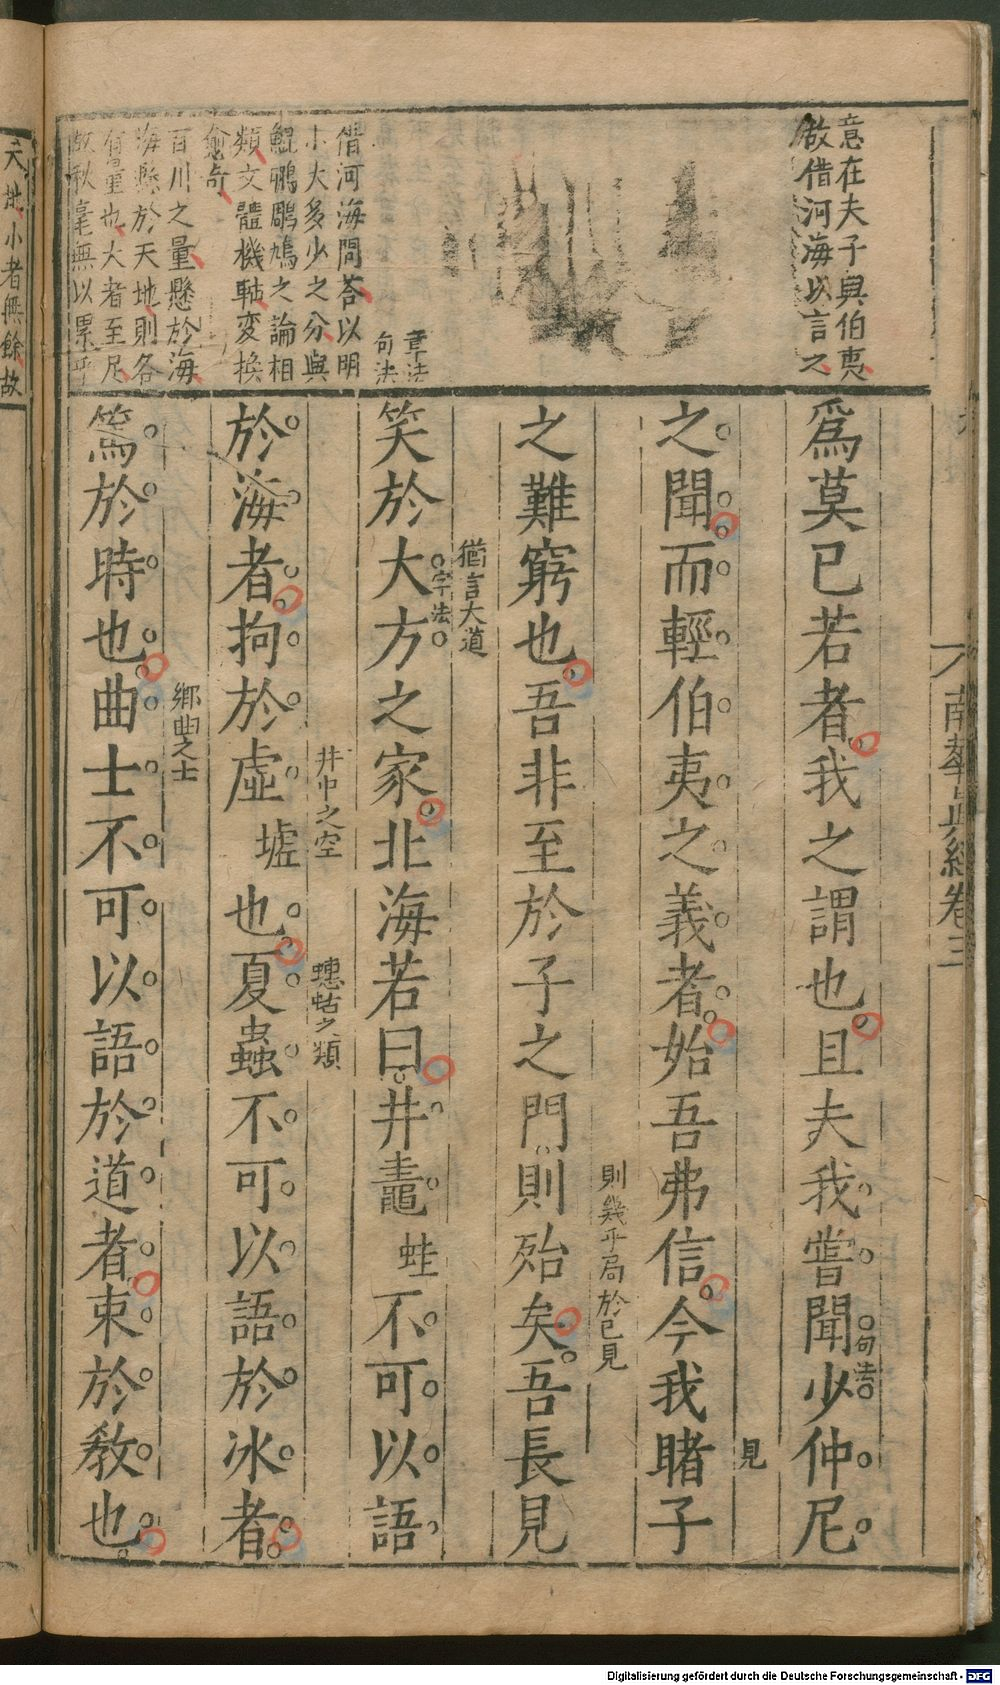 意在夫子與伯夷
故借河海以言之
章法
句法
借河海問答以明
小大多少之分與
鯤鵬鷃鳩之論相
類文體機軸变換
愈奇
百川之量懸於海
海懸於天地則各
有量也大者至足
故秋毫無以累乎
爲莫已若者我之謂也且夫我嘗聞少仲尼
句法
之聞而輕伯夷之義者始吾弗信今我睹子
見
之難窮也吾非至於子之門則殆矣吾長見
則幾乎局於已見
笑於大方之家北海若曰井鼃蛙不可以語
猶言大道
字法
於海者拘於虛墟也夏蟲不可以語於冰者
井中之空
蟪蛄之類
篤於時也曲士不可以語於道者束於教也
鄉曲之士
南華真經卷三
天地小者無餘故
Digitalisierung gefördert durch die Deutsche Forschungsgemeinschaft - DFG